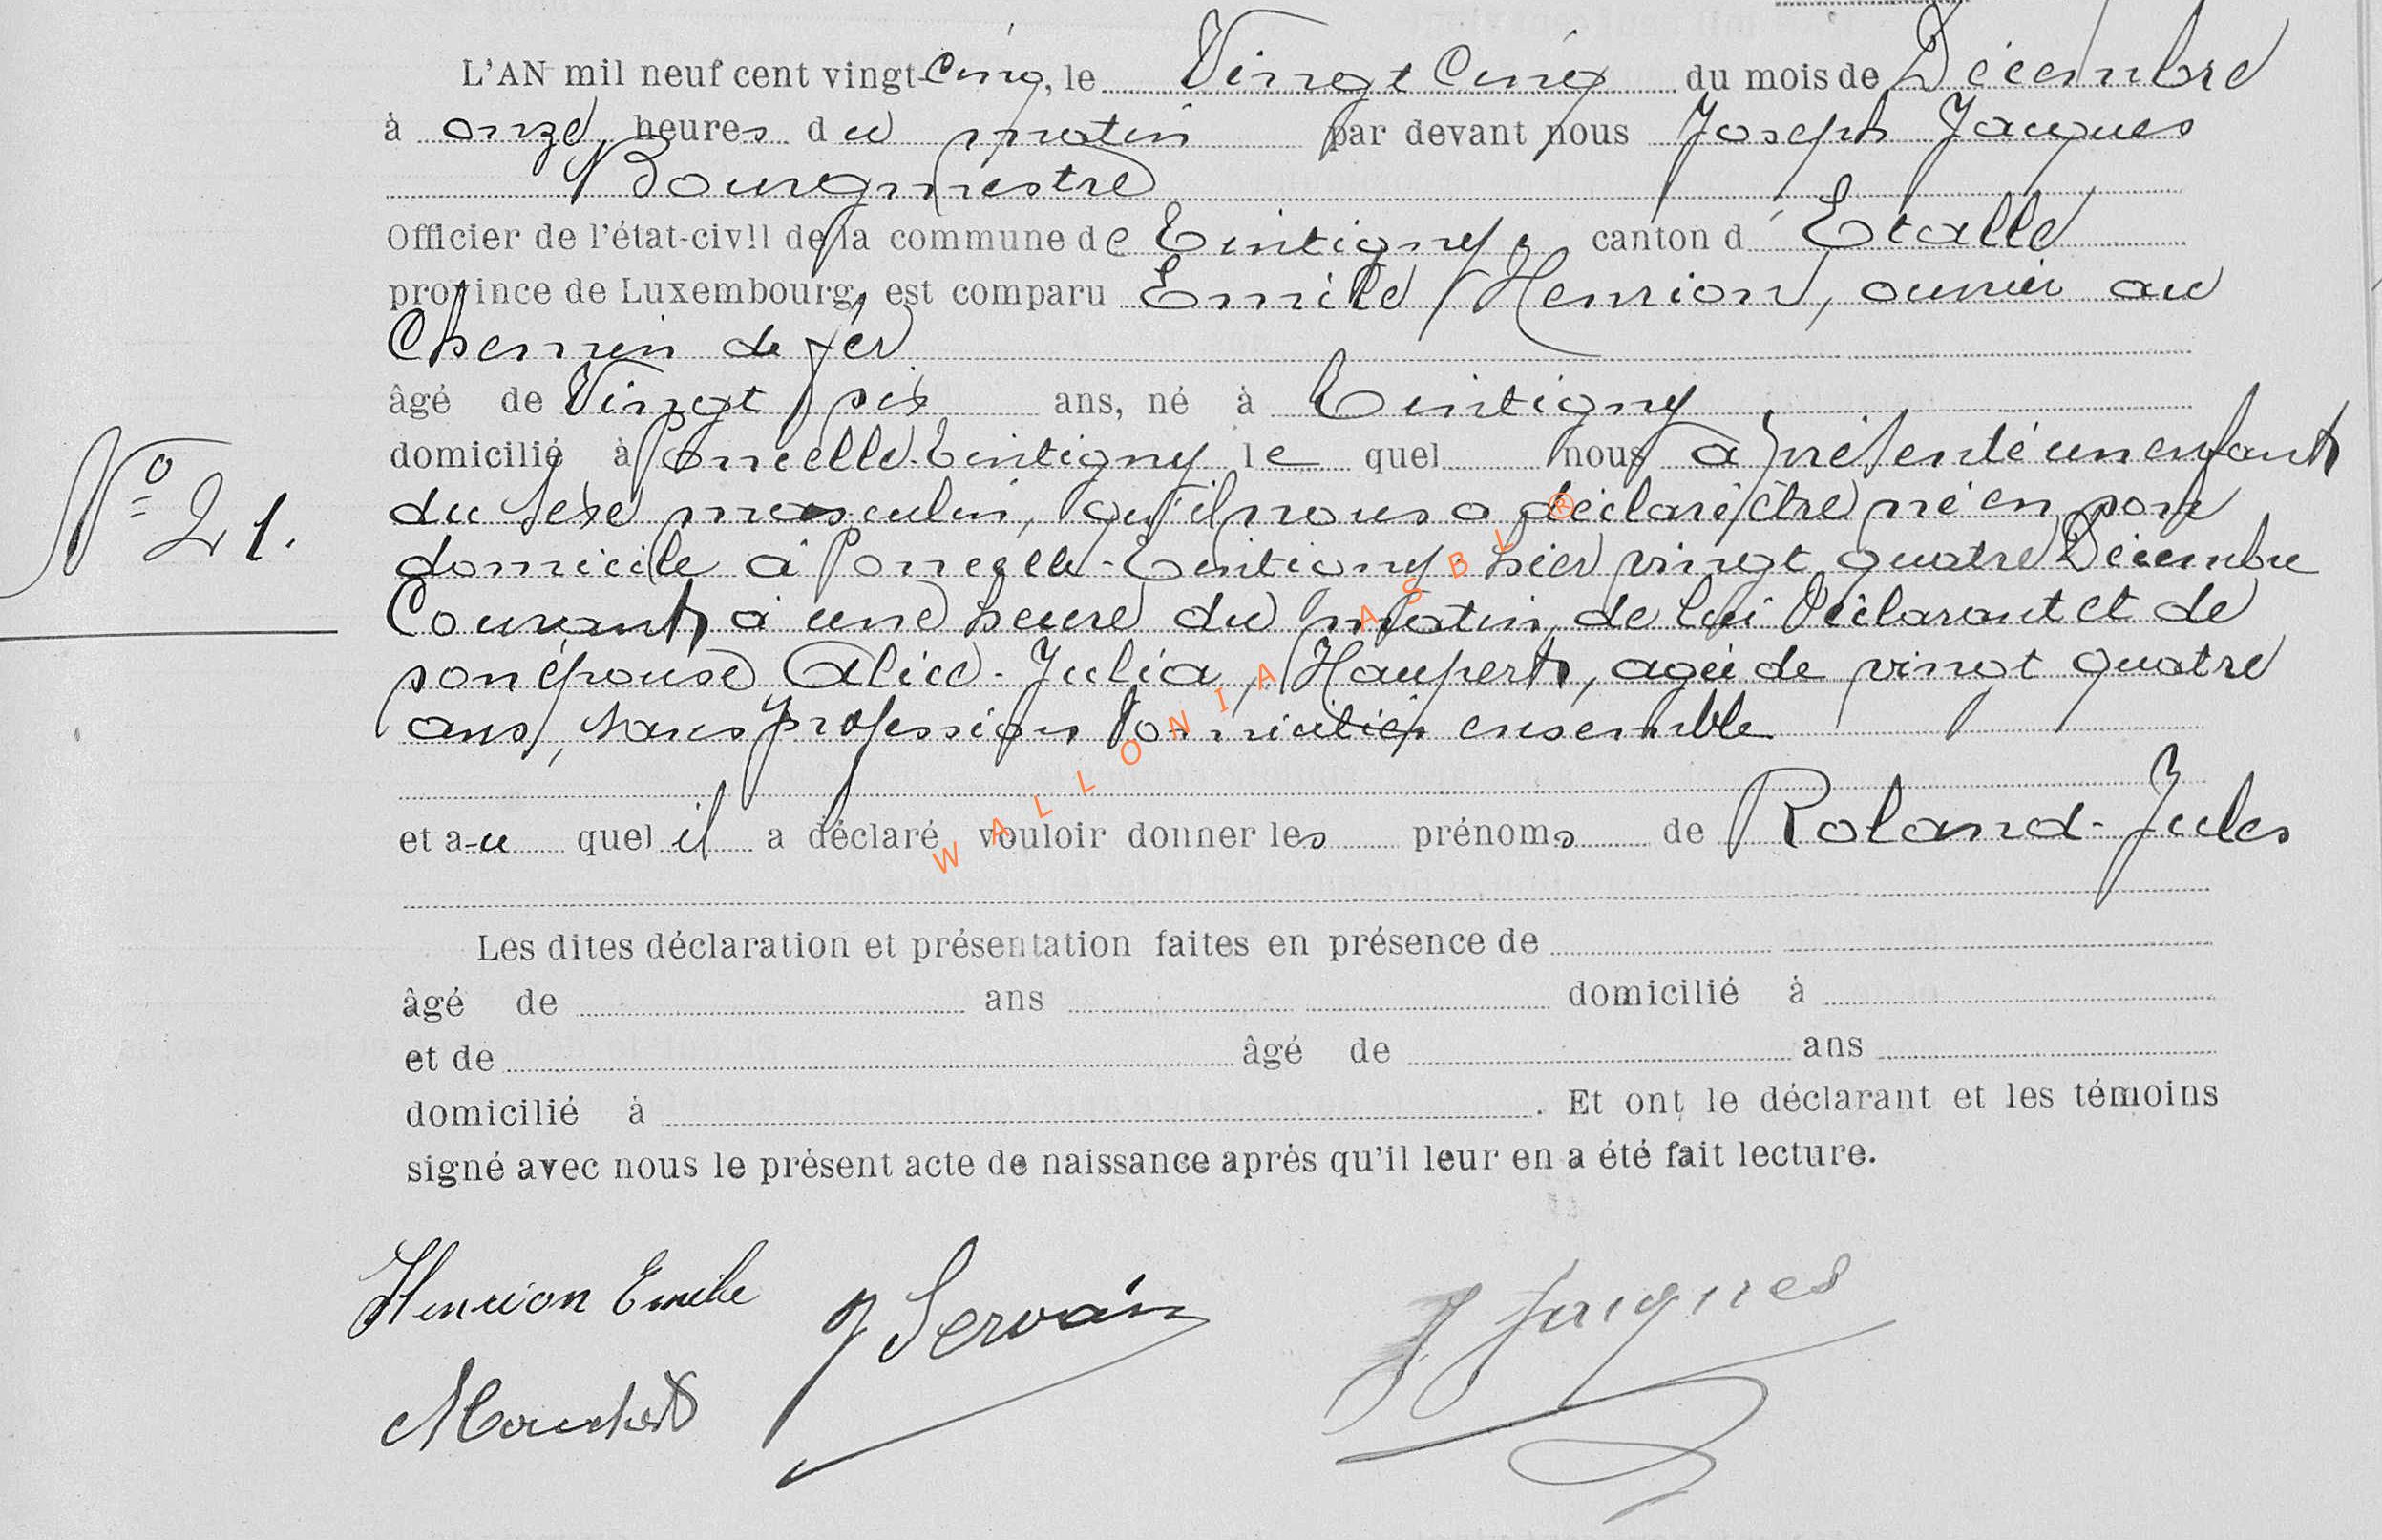 L'AN mil neuf cent vingt-Cinq, le Vingt Cinq du mois de Décembre
à onze heures du matin par devant nous Joseph Jacques
Bourgmestre
Officier de l'état-civil de la commune de Tintigny, canton d'Etalle
province de Luxembourg, est comparu Emile Henrion, ouvrier au
Chemin de fer
âgé de Vingt six ans, né à Tintigny
domicilié à Poncelle-Tintigny le quel nous a présenté un enfant
N° 21.
du sexe masculin, qu'il nous a déclaré être né en son
domicile à Poncelle-Tintigny hier vingt quatre Décembre
Courant à une heure du matin, de lui Déclarant et de
son épouse Alice-Julia, Haupert, agée de vingt quatre
ans, sans profession Domiciliés ensemble
et au quel il a déclaré vouloir donner les prénoms de Roland-Jules
Les dites déclaration et présentation faites en présence de
âgé de ans domicilié à
et de âgé de ans
domicilié à . Et ont le déclarant et les témoins
signé avec nous le présent acte de naissance après qu'il leur en a été fait lecture.
Henrion Emile J Servais J Jacques
WALLONIA ASBL ®